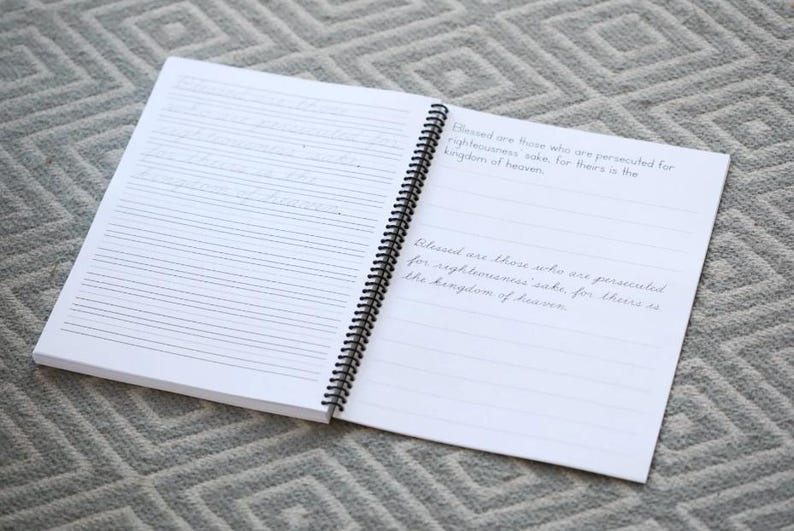 Blessed are those
persecuted for
kingdom of heaven.
Blessed are those who are persecuted for
righteousness' sake, for theirs is the
kingdom of heaven.
Blessed are those who are persecuted
for righteousness' sake, for theirs is
the kingdom of heaven.